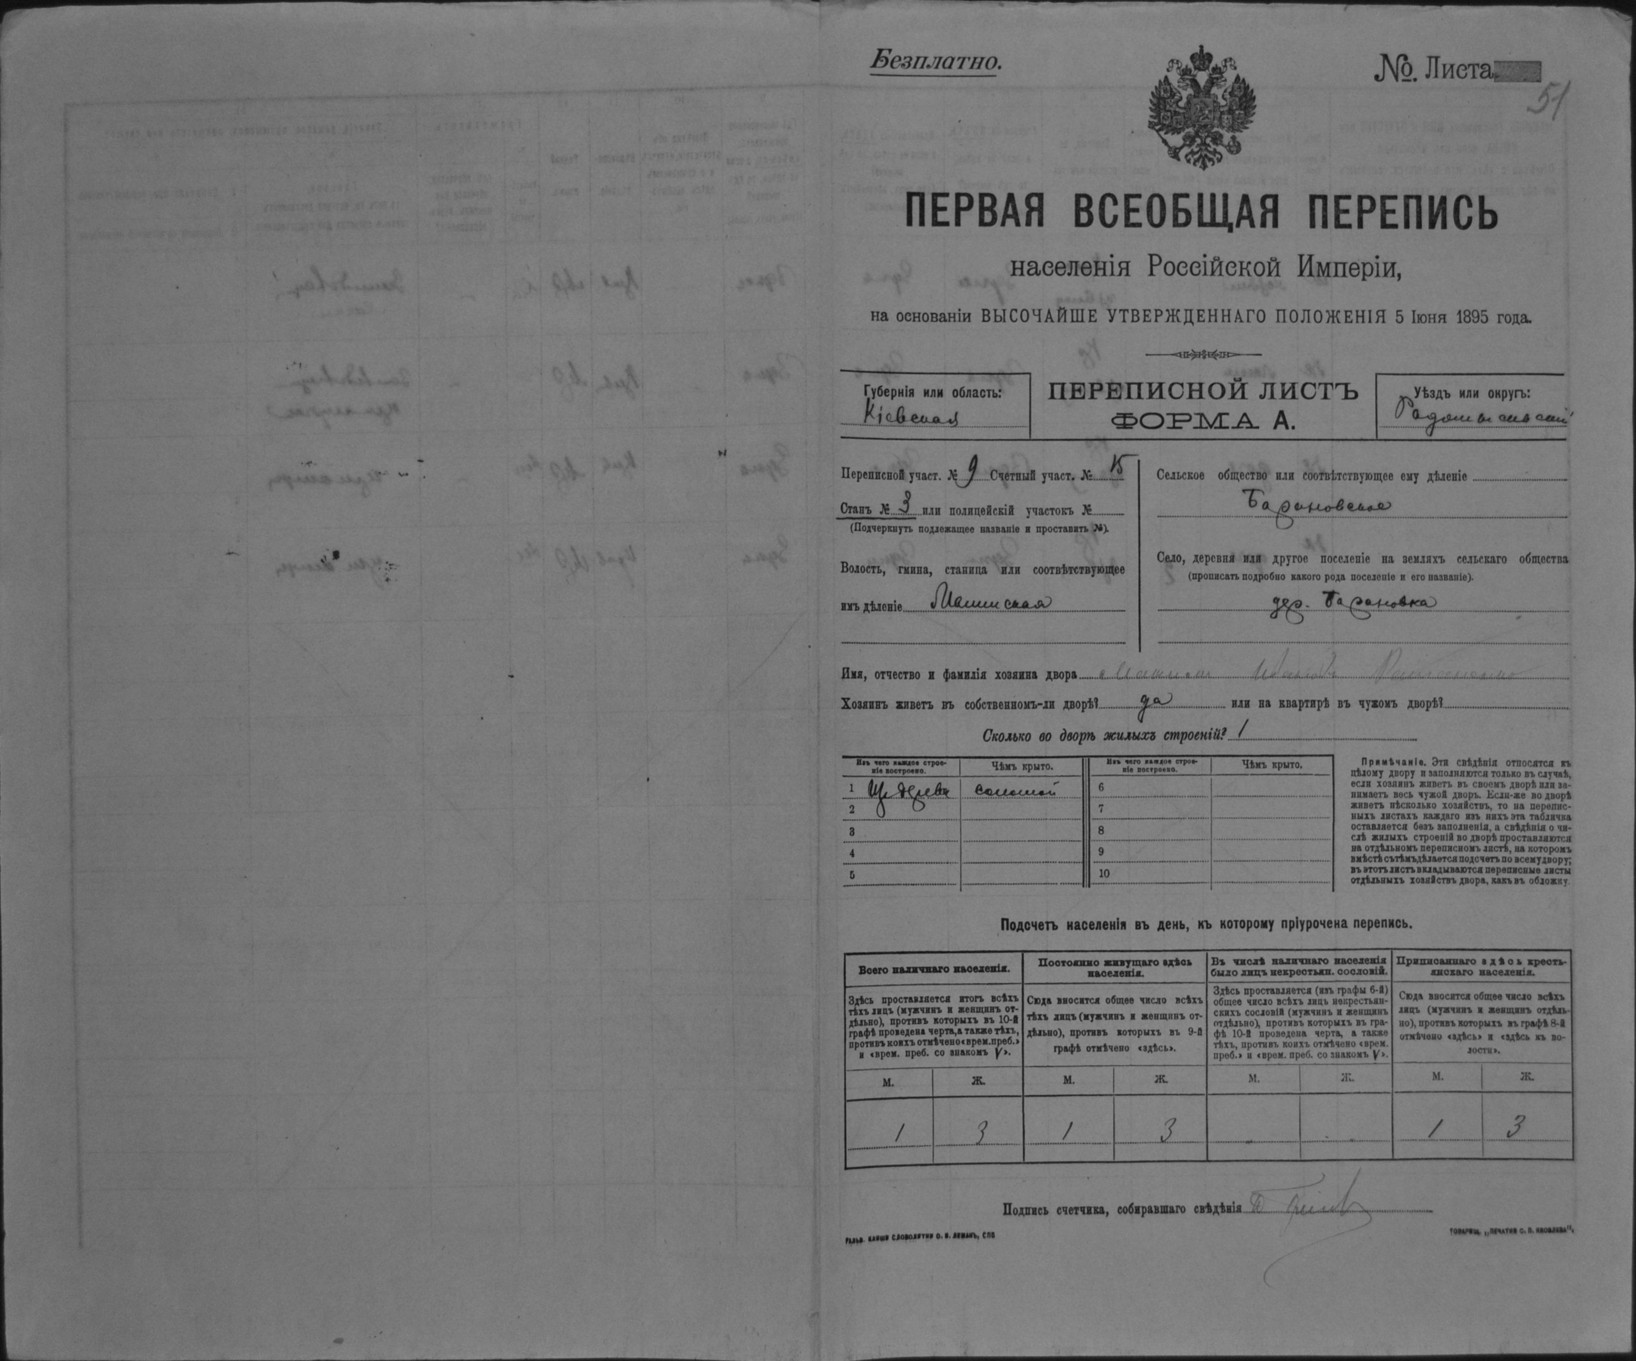 Безплатно.
№. Листа
51
ПЕРВАЯ ВСЕОБЩАЯ ПЕРЕПИСЬ
населенія Россійской Имперіи,
на основаніи ВЫСОЧАЙШЕ УТВЕРЖДЕННАГО ПОЛОЖЕНІЯ 5 Іюня 1895 года.
Губернія или область:
Кіевская
ПЕРЕПИСНОЙ ЛИСТЪ
ФОРМА А.
Уѣздъ или округъ:
Радомысльскій
Переписной участ. № 9 Счетный участ. № 15
Станъ № 3 или полицейскій участокъ №
(Подчеркнуть подлежащее названіе и проставить №).
Волость, гмина, станица или соотвѣтствующее
имъ дѣленіе Малинская
Сельское общество или соотвѣтствующее ему дѣленіе
Барановское
Село, деревня или другое поселеніе на земляхъ сельскаго общества
(прописать подробно какого рода поселеніе и его названіе).
дер. Барановка
Имя, отчество и фамилія хозяина двора Ивановъ
Хозяинъ живетъ въ собственномъ-ли дворѣ? да или на квартирѣ въ чужомъ дворѣ?
Сколько во дворѣ жилыхъ строеній? 1
Изъ чего каждое строеніе построено.
Чѣмъ крыто.
Изъ чего каждое строеніе построено.
Чѣмъ крыто.
1 Изъ дерева соломой
2
3
4
5
6
7
8
9
10
Примѣчаніе. Эти свѣдѣнія относятся къ
цѣлому двору и заполняются только въ случаѣ,
если хозяинъ живетъ въ своемъ дворѣ или за-
нимаетъ весь чужой дворъ. Если-же во дворѣ
живетъ нѣсколько хозяйствъ, то на перепис-
ныхъ листахъ каждаго изъ нихъ эта табличка
оставляется безъ заполненія, а свѣдѣнія о чи-
слѣ жилыхъ строеній во дворѣ проставляются
на отдѣльномъ переписномъ листѣ, на которомъ
вмѣстѣ съ тѣмъ дѣлается подсчетъ по всему двору;
въ этотъ листъ вкладываются переписные листы
отдѣльныхъ хозяйствъ двора, какъ въ обложку.
Подсчетъ населенія въ день, къ которому пріурочена перепись.
Всего наличнаго населенія.
Здѣсь проставляется итогъ всѣхъ
тѣхъ лицъ (мужчинъ и женщинъ от-
дѣльно), противъ которыхъ въ 10-й
графѣ проведена черта, а также тѣхъ,
противъ коихъ отмѣчено «врем. преб.»
и «врем. преб. со знакомъ V».
Постоянно живущаго здѣсь
населенія.
Сюда вносится общее число всѣхъ
тѣхъ лицъ (мужчинъ и женщинъ от-
дѣльно), противъ которыхъ въ 9-й
графѣ отмѣчено «здѣсь».
Въ числѣ наличнаго населенія
было лицъ некрестьян. сословій.
Здѣсь проставляется (изъ графы 6-й)
общее число всѣхъ лицъ некрестьян-
скихъ сословій (мужчинъ и женщинъ
отдѣльно), противъ которыхъ въ гра-
фѣ 10-й проведена черта, а также
тѣхъ, противъ коихъ отмѣчено «врем.
преб.» и «врем. преб. со знакомъ V».
Приписаннаго здѣсь кресть-
янскаго населенія.
Сюда вносится общее число всѣхъ
лицъ (мужчинъ и женщинъ отдѣль-
но), противъ которыхъ въ графѣ 8-й
отмѣчено «здѣсь» и «здѣсь къ во-
лости».
М. Ж. М. Ж. М. Ж. М. Ж.
1 3 1 3 - - 1 3
Подпись счетчика, собиравшаго свѣдѣнія
ТОВАРИЩ. „ПЕЧАТНЯ С. П. ЯКОВЛЕВА".